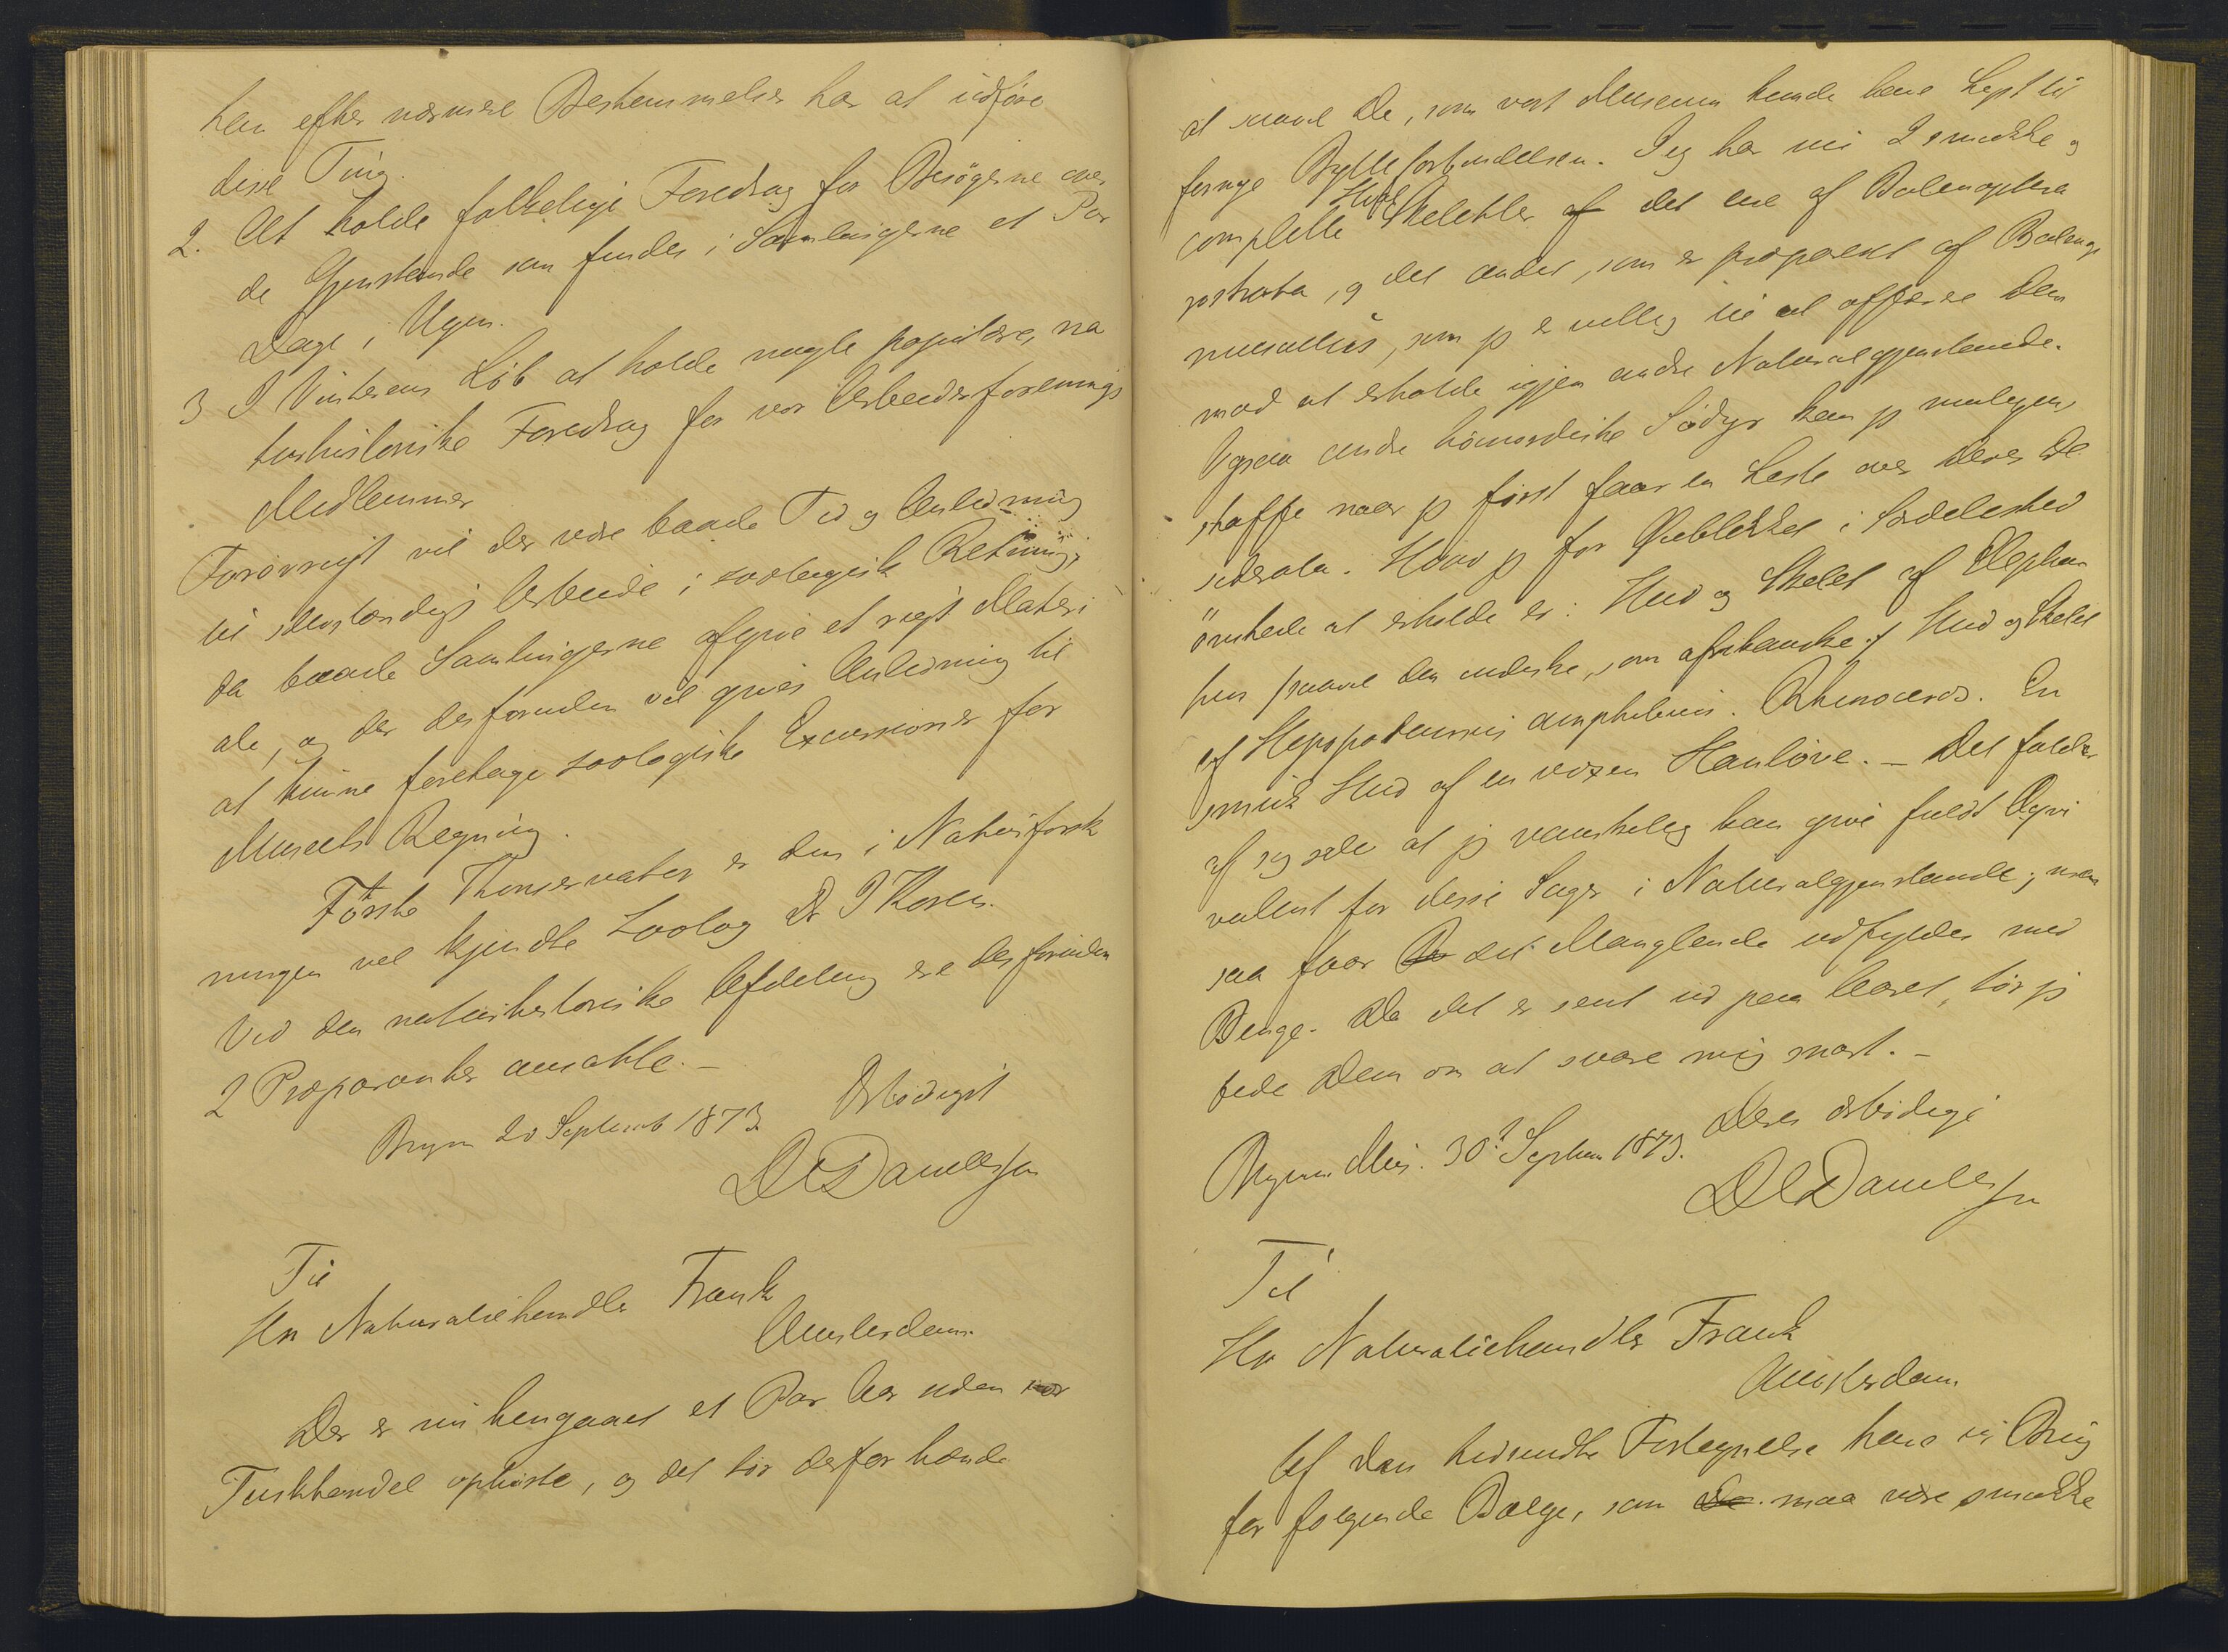 han efter nærmere Bestemmelser har at udføre
disse Ting.
2. At holde folkelige Foredrag for Besøgerne over
de Gjenstande som findes i Samlingerne et Par
Dage i Ugen.
3 I Vinterens Løb at holde nogle populære, na
turhistoriske Foredrag for vor Arbeiderforenings
Medlemmer
Forøvrigt vil der være baade Tid og Anledning
til selvstændigt Arbeide i zoologisk Retning,
da baade Samlingerne afgive et rigt Materi
ale, og der desforuden vil gives Anledning til
at kunne foretage zoologiske Excursioner for
Museets Regning.
Første Konservator er den i Naturforsk
ningen vel kjendte Zoolog Dr J Koren.
Ved den naturhistoriske Afdeling ere desforuden
2 Præparanter ansatte. –
Bergen 20 Septemb 1873. Ærbødigst
DCDanielssen
Til
Hr Naturaliehandler Frank
Amsterdam.
Der er nu hengaaet et Par Aar uden vor
Tuskhandel ophørte, og det tør derfor hænde
at saavel De, som vort Museum kunde have Lyst til
fornye Bytteforbindelsen. Jeg har nu 2 smukke og
complette Hval Skeletter af det ene af Balenoptera
rostrata, og det andet, som er præpareret af Balenop
musculus, som jeg er villig til at afstaa Dem
mod at erholde igjen andre Naturalgjenstande.
Ogsaa andre høinordiske Sødyr kan jeg muligens
skaffe naar jeg først faar en Liste over Deres De
siderata. Hvad jeg for Øieblikket i Særdeleshed
ønskede at erholde er: Hud og Skelet af Elephan
ten saavel den indiske, som afrikanske; Hud og Skelet
af Hippopotamus amphibius. Rhinoceros. En
smuk Hud af en voxen Hanløve. – Det falder
af sig selv at jeg vanskelig kan give fuldt Æqvi
valent for disse Sager i Naturalgjenstande; men
saa faar De det Manglende udfyldes med
Penge. Da det er sent ud paa Aaret, tør jeg
bede Dem om at svare mig snart. –
Bergens Mus. 30te Septem 1873. Deres ærbødige
DCDanielssen
Til
Hr Naturaliehandler Frank
Amsterdam.
Af den tilsendte Fortegnelse have vi Brug
for følgende Bælge, som De maa være smukke